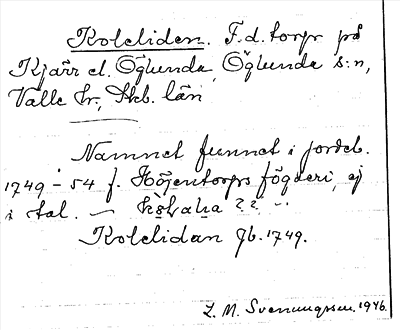 Kolelidan. F.d. torp på
Kjärr el. Öglunda, Öglunda s:n,
Valle hr, Skb. län
Namnet funnet i jordeb.
1749 - 54 f. Höjentorps fögderi, ej
i tal. —
Kolelidan Jb. 1749.
L. M. Svenungsson. 1946.